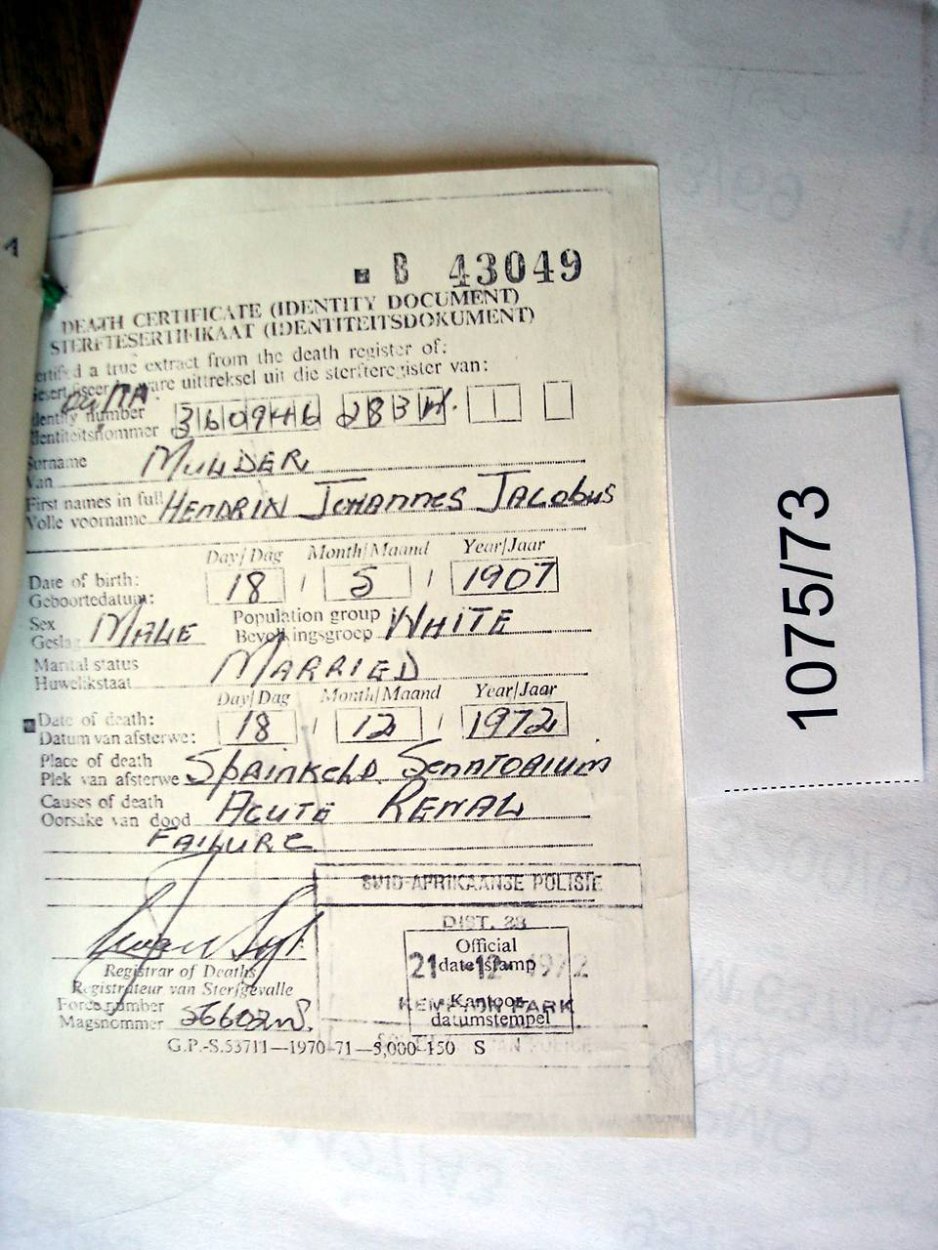 B 43049
DEATH CERTIFICATE (IDENTITY DOCUMENT)
STERFTESERTIFIKAAT (IDENTITEITSDOKUMENT)
a true extract from the death register of:
ware uittreksel uit die sterfteregister van:
Identity number
Identiteitsnommer
Surname
Van MULDER
First names in full
Volle voorname HENDRIK JOHANNES JACOBUS
Day/Dag Month/Maand Year/Jaar
Date of birth:
Geboortedatum: 18 / 5 / 1907
Sex
Geslag MALE
Population group
Bevolkingsgroep WHITE
Marital status
Huwelikstaat MARRIED
Day/Dag Month/Maand Year/Jaar
Date of death:
Datum van afsterwe: 18 / 12 / 1972
Place of death
Plek van afsterwe SENATORIUM
Causes of death
Oorsake van dood ACUTE RENAL
FAILURE
SUID-AFRIKAANSE POLISIE
DIST. 23
Official
date stamp
21 -12- 1972
KEMPTON PARK
Kantoor-
datumstempel
Registrar of Deaths
Registrateur van Sterfgevalle
Force number
Magsnommer
G.P.-S.53711—1970-71—5,000-150 S
1075/73